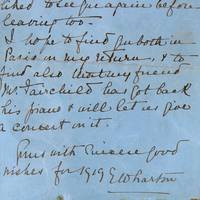 liked to see you again before
leaving too.
I hope to find you both in
Paris on my return, & to
find also that my friend
Mr Fairchild has got back
his piano & will let us give
a concert on it.
Yours with sincere good
wishes for 1919 EWharton